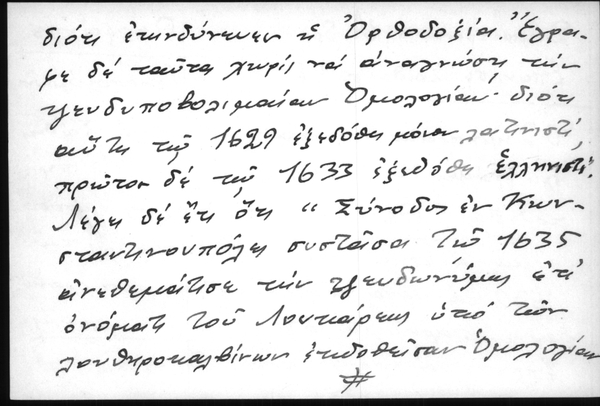 διότι ἐκινδύνευεν ἡ Ὀρθοδοξία. Ἔγρα-
ψε δέ ταῦτα χωρίς νά ἀναγνώσῃ τήν
ψευδυποβολιμαίαν Ὁμολογίαν· διότι
αὕτη τῷ 1629 ἐξεδόθη μόνον λατινιστί,
πρῶτον δέ τῷ 1633 ἐξεδόθη ἑλληνιστί.
Λέγει δέ ἔτι ὅτι “ Σύνοδος ἐν Κων-
σταντινουπόλει συστᾶσα τῷ 1635
ἀνεθεμάτισε τήν ψευδωνύμως ἐπ'
ὀνόματι τοῦ Λουκάρεως ὑπό τῶν
λουθηροκαλβίνων ἐκδοθεῖσαν Ὁμολογίαν